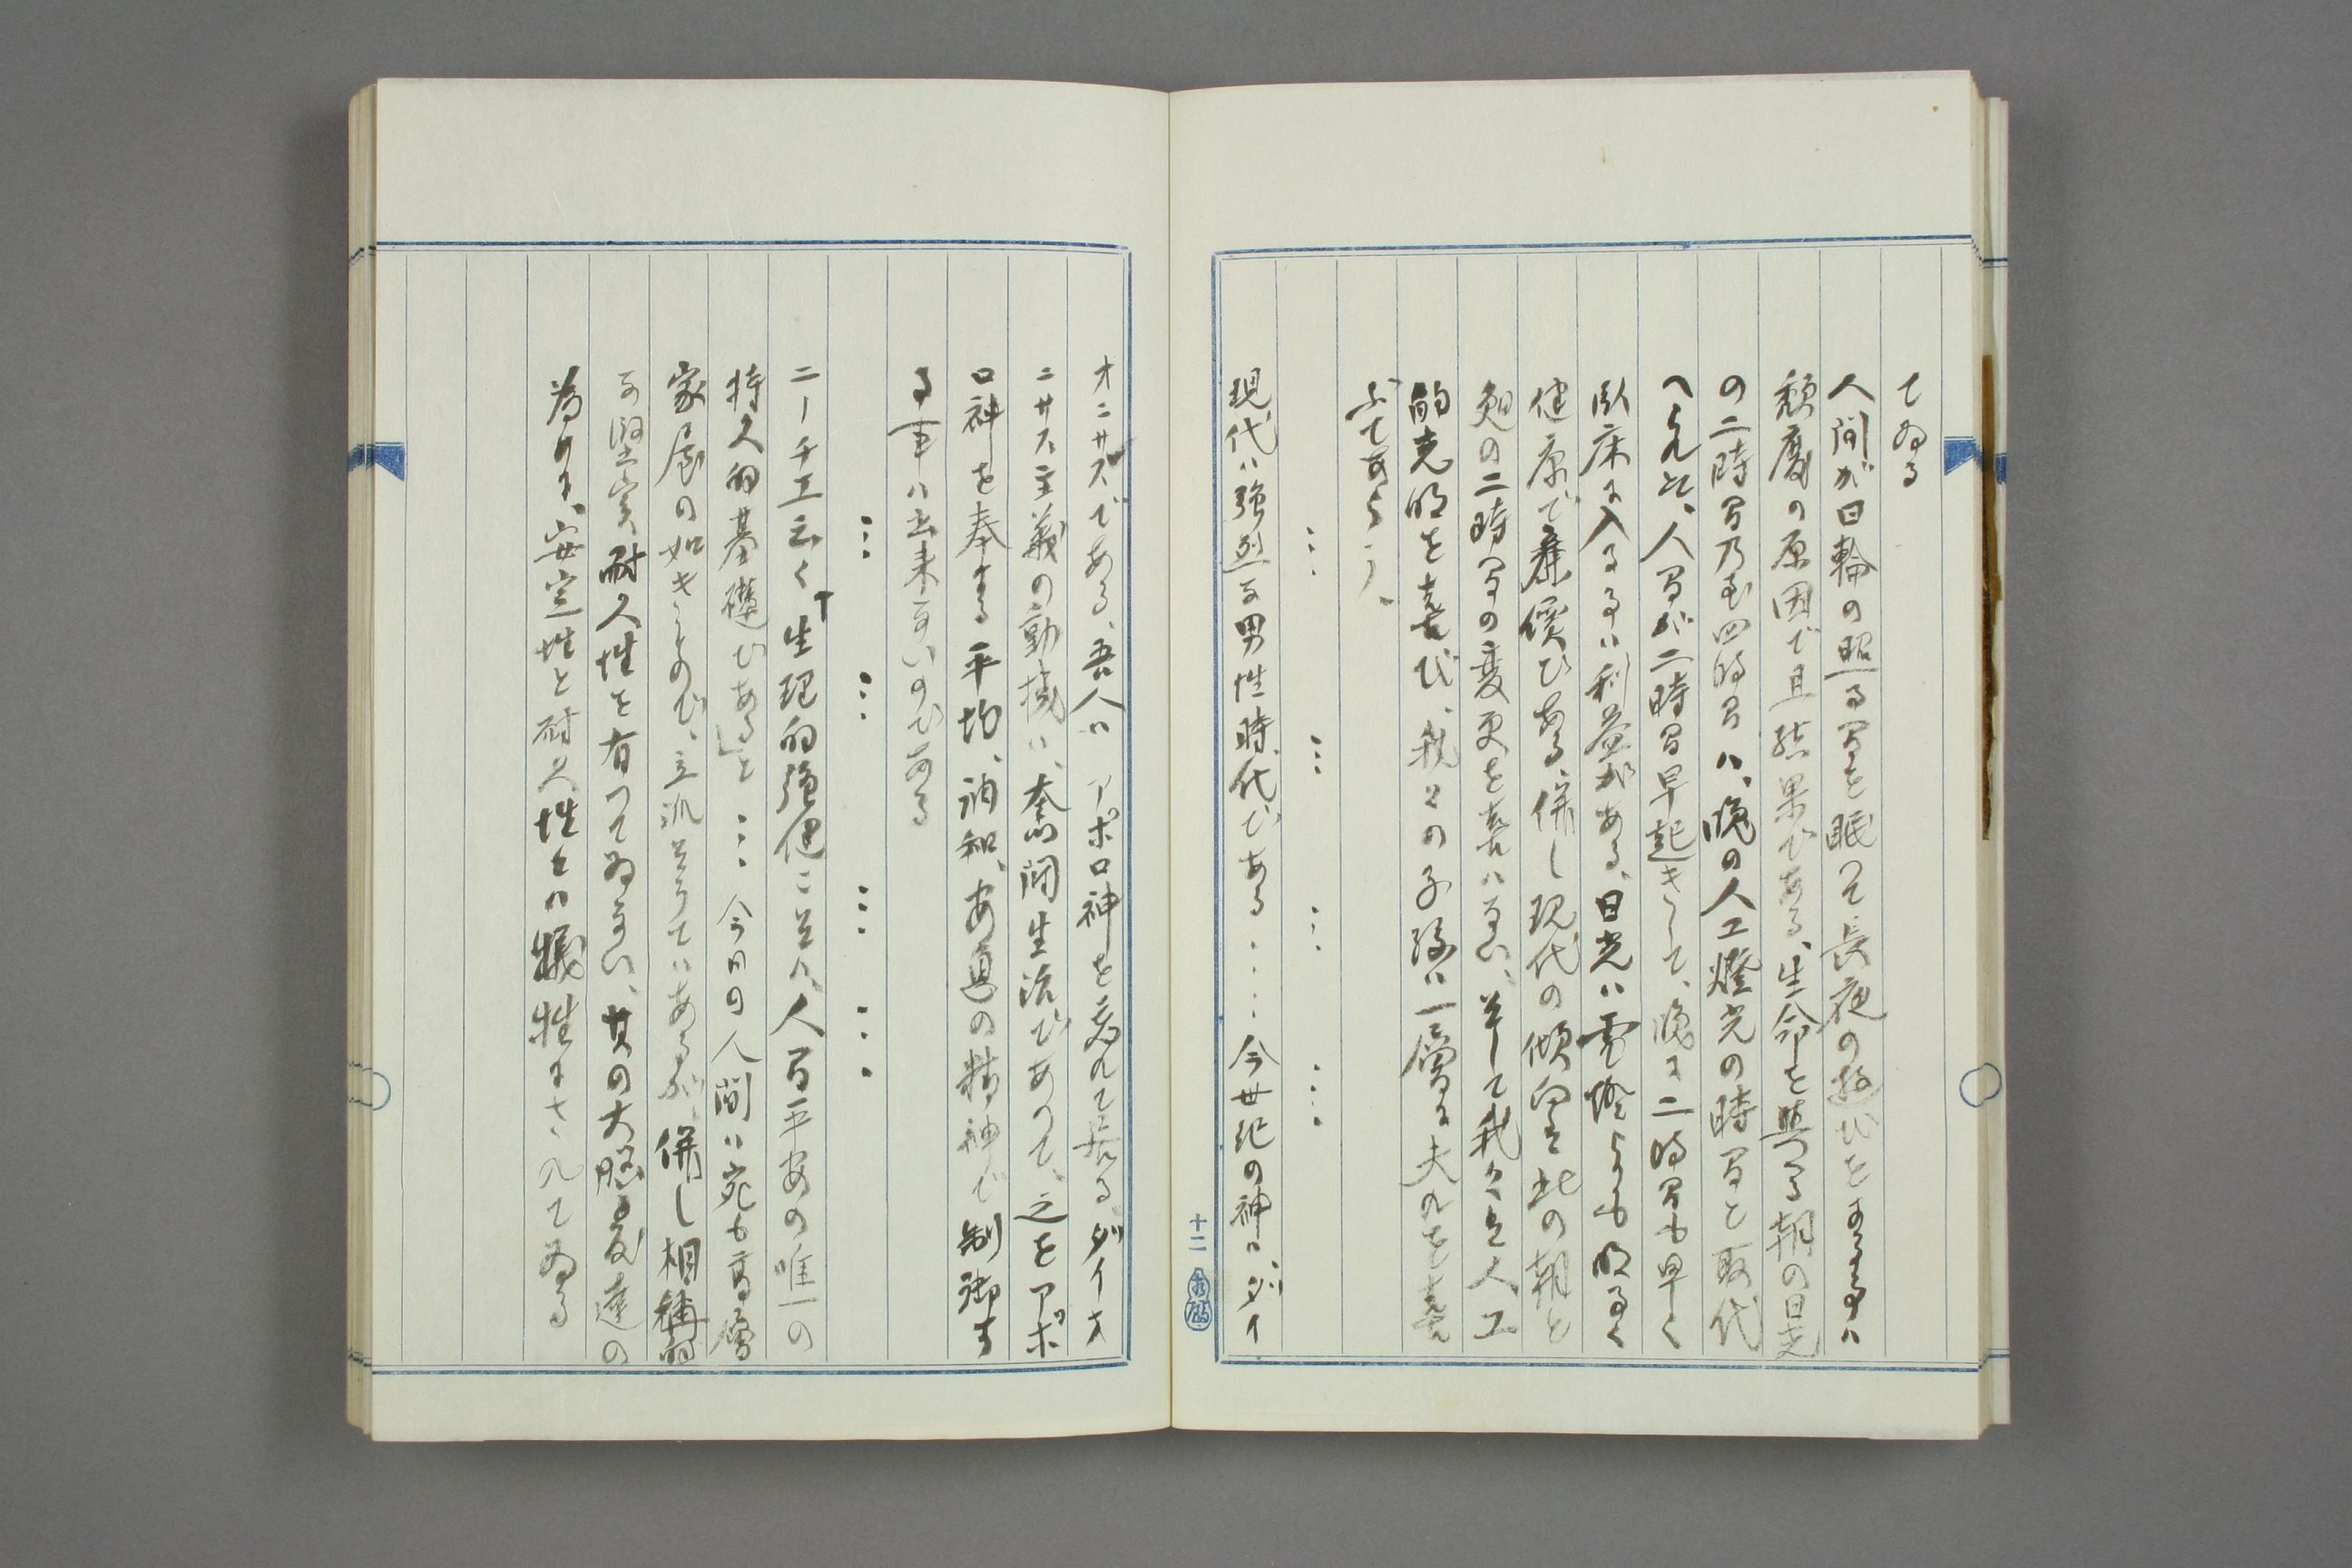 てゐる
人間が日輪の照る間を眠つて長夜の遊びをする事ハ
頽廃の原因で且結果である、生命を與へる朝の日光
の二時間乃至四時間ハ、晩の人工燈光の時間と取代
へられ、人間が二時間早起きして、晩に二時間も早く
臥床に入る事ハ利益がある、日光ハ電燈よりも明るく
健康で廉價である、併し現代の傾向は此の朝と
晩の二時間の変更を喜ハない、そして我々は人工
的光明を喜び、我々の子孫ハ一層に夫れを喜
ぶであらう、
∴ ∴ ∴ ∴
現代ハ強烈な男性時代である ‥‥ 今世紀の神ハ、ダイ
十二
オニサスである、吾人ハ アポロ神を忘れて居る ダイオ
ニサス主義の動機ハ、奮闘生活であつて、之をアポ
ロ神を奉ずる平均、調和、安息の精神で制御す
る事ハ出来ないのである
∴ ∴ ∴ ∴
ニーチエ云く「生理的強健こそハ、人間平安の唯一の
持久的基礎である」と ∴ 今日の人間ハ宛も高層
家屋の如きもので、立派そうでハあるが、併し相稱的
な堅実、耐久性を有つてゐない、其の大脳発達の
為めに、安定性と耐久性とハ犠牲にされてゐる